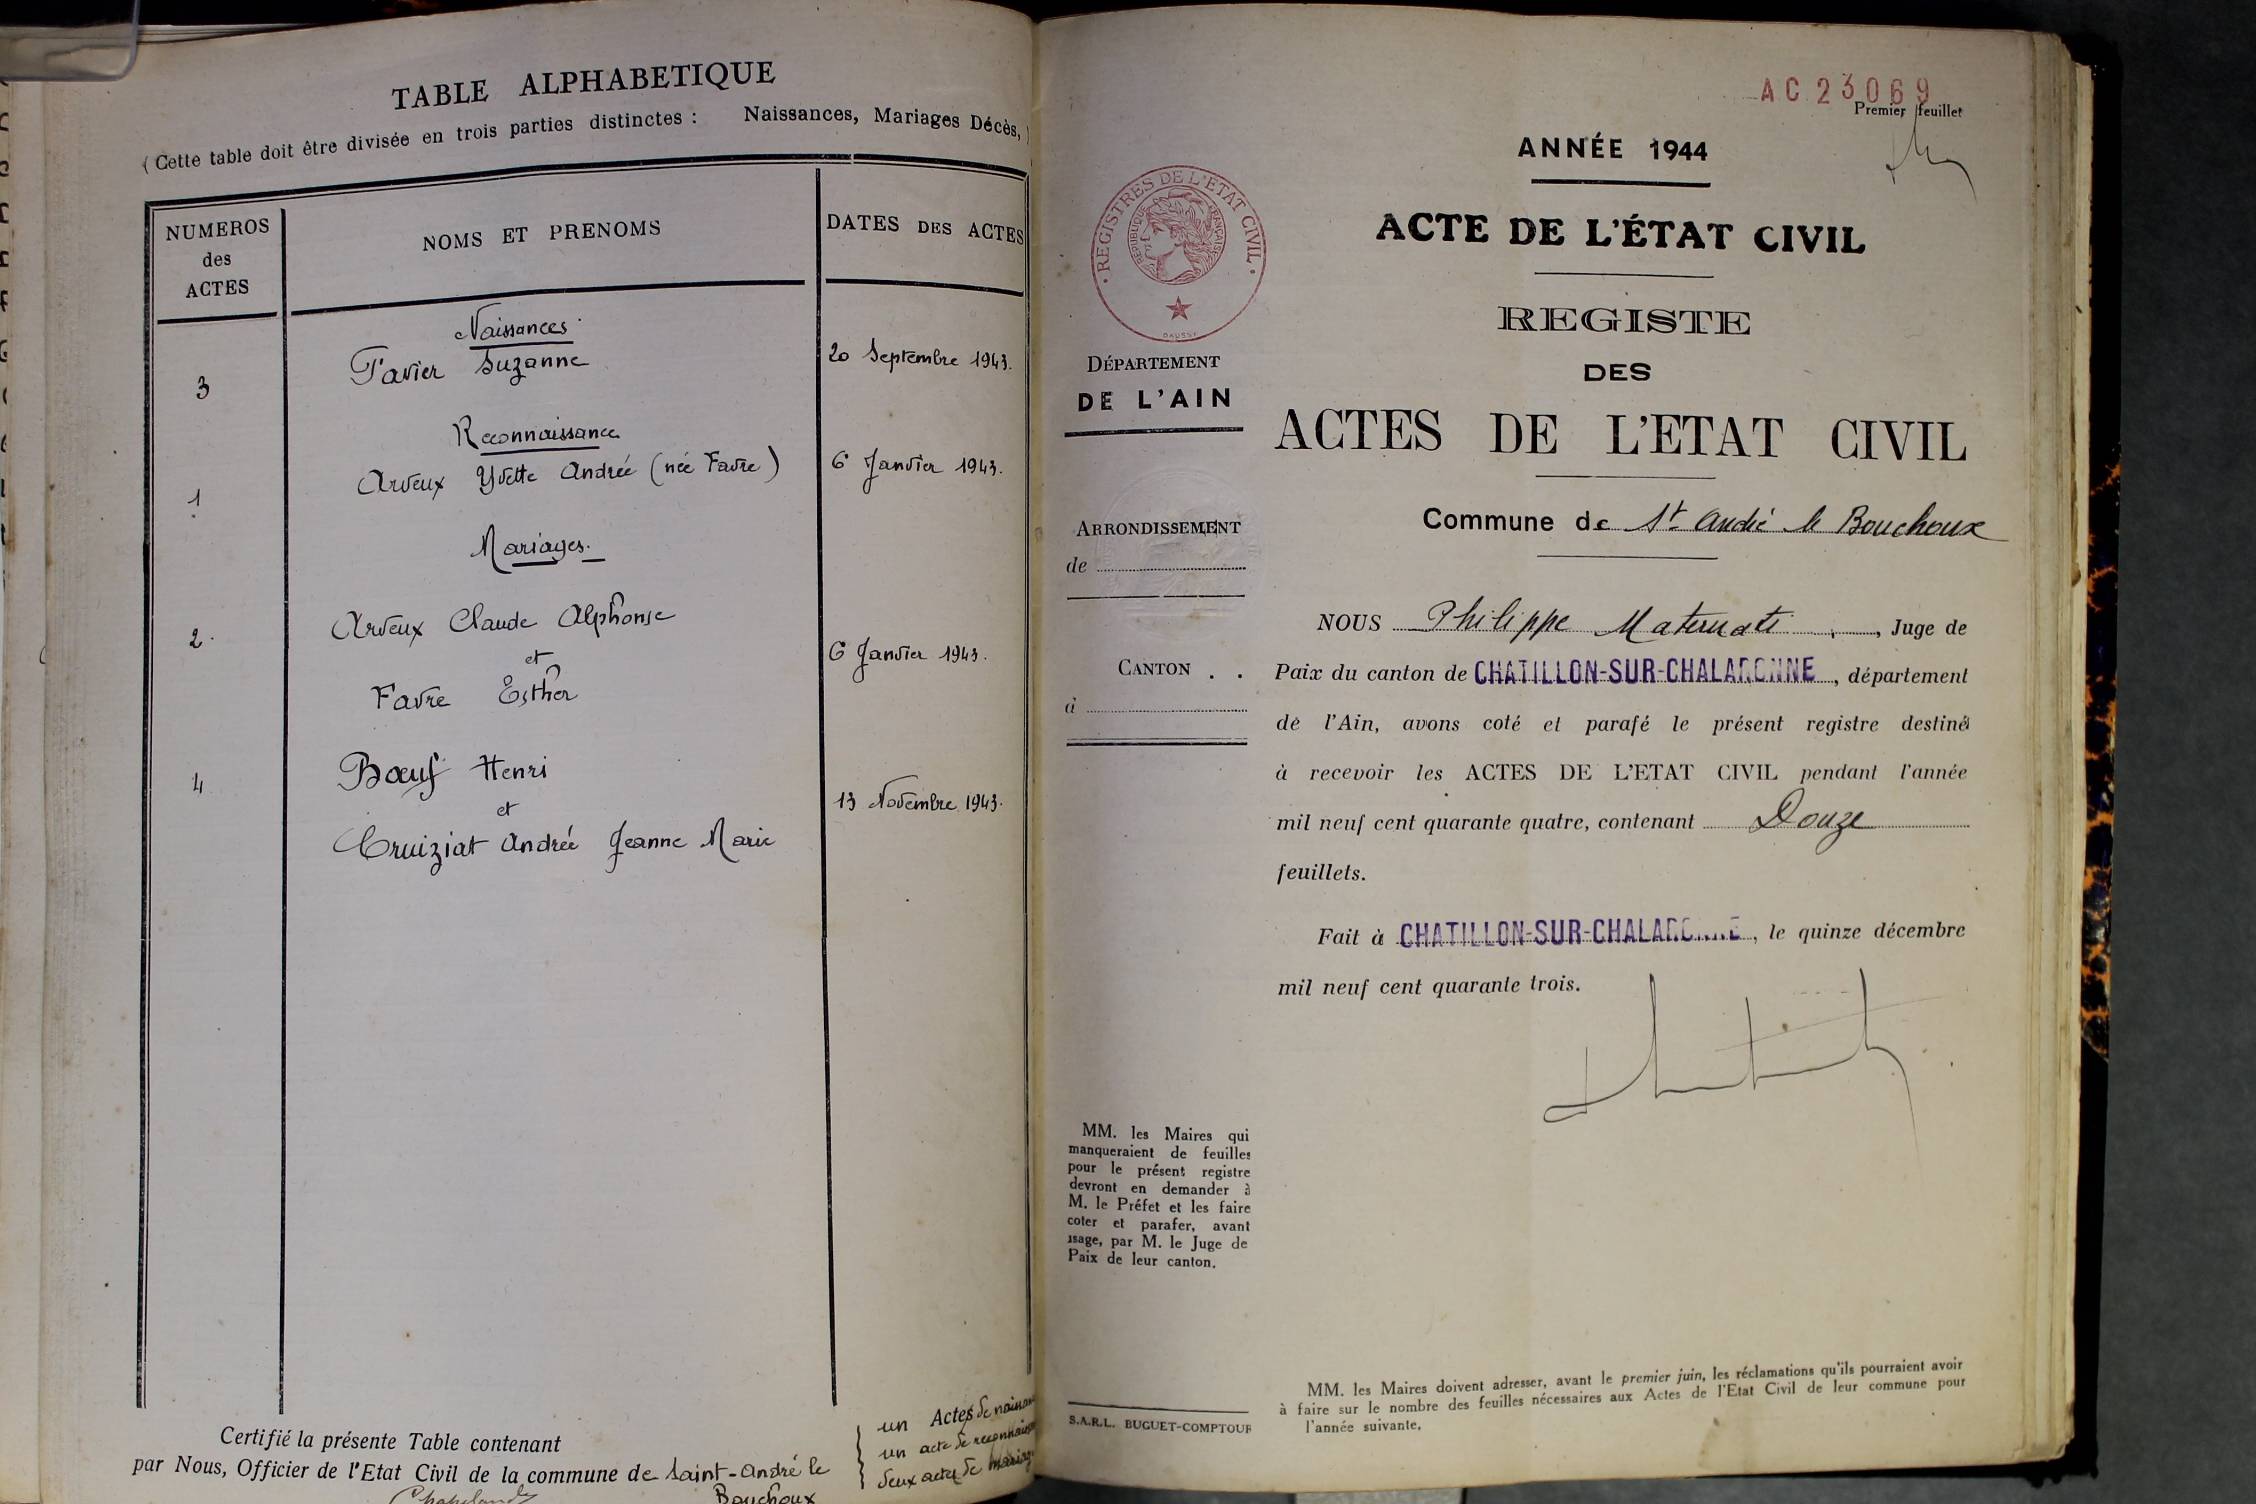 TABLE ALPHABETIQUE
( Cette table doit être divisée en trois parties distinctes : Naissances, Mariages Décès, )
NUMEROS
des
ACTES
NOMS ET PRENOMS
DATES DES ACTES
Naissances
3 Tavier Suzanne 20 Septembre 1943.
Reconnaissance
1 Arveux Yvette Andrée (née Favre) 6 Janvier 1943.
Mariages.
2. Arveux Claude Alphonse
et 6 Janvier 1943.
Favre Esther
4 Bœuf Henri
et 13 Novembre 1943.
Cruiziat Andrée Jeanne Marie
Certifié la présente Table contenant
un Actes de naissan
un acte de reconnaissan
deux actes de mariag
par Nous, Officier de l'Etat Civil de la commune de Saint-André le
Bouchoux
AC 23069
Premier feuillet
ANNÉE 1944
ACTE DE L'ÉTAT CIVIL
REGISTE
DES
ACTES DE L'ETAT CIVIL
Commune de St André le Bouchoux
REGISTRES DE L'ETAT CIVIL
REPUBLIQUE FRANÇAISE
DAUSSY
DÉPARTEMENT
DE L'AIN
ARRONDISSEMENT
de
CANTON . .
à
NOUS Philippe Maternati , Juge de
Paix du canton de CHATILLON-SUR-CHALARONNE, département
de l'Ain, avons coté et parafé le présent registre destiné
à recevoir les ACTES DE L'ETAT CIVIL pendant l'année
mil neuf cent quarante quatre, contenant Douze
feuillets.
Fait à CHATILLON-SUR-CHALARONNE, le quinze décembre
mil neuf cent quarante trois.
MM. les Maires qui
manqueraient de feuilles
pour le présent registre
devront en demander à
M. le Préfet et les faire
coter et parafer, avant
usage, par M. le Juge de
Paix de leur canton.
S.A.R.L. BUGUET-COMPTOUR
MM. les Maires doivent adresser, avant le premier juin, les réclamations qu'ils pourraient avoir
à faire sur le nombre des feuilles nécessaires aux Actes de l'Etat Civil de leur commune pour
l'année suivante.